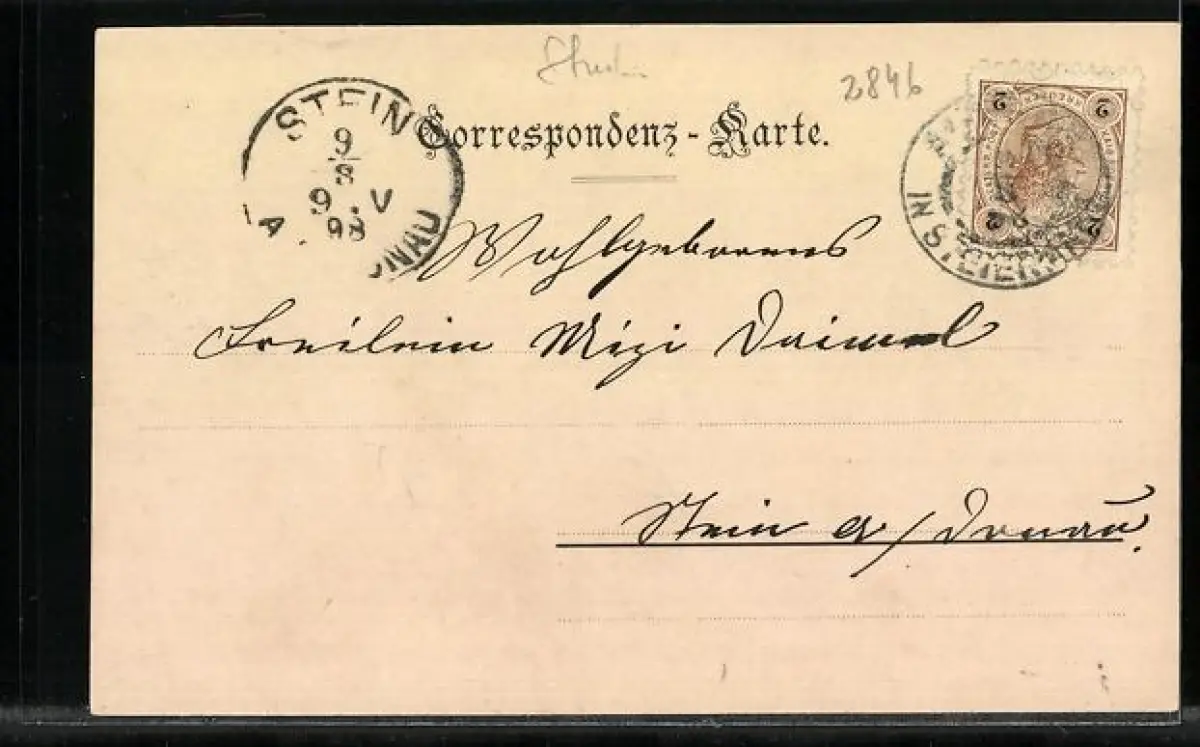 2846
Correspondenz-Karte.
STEIN
9
8
9.V
98
A. DONAU
IN STEIERM
2 2
2 2
Wohlgeborens
Fräulein Mizi
Stein a/Donau.